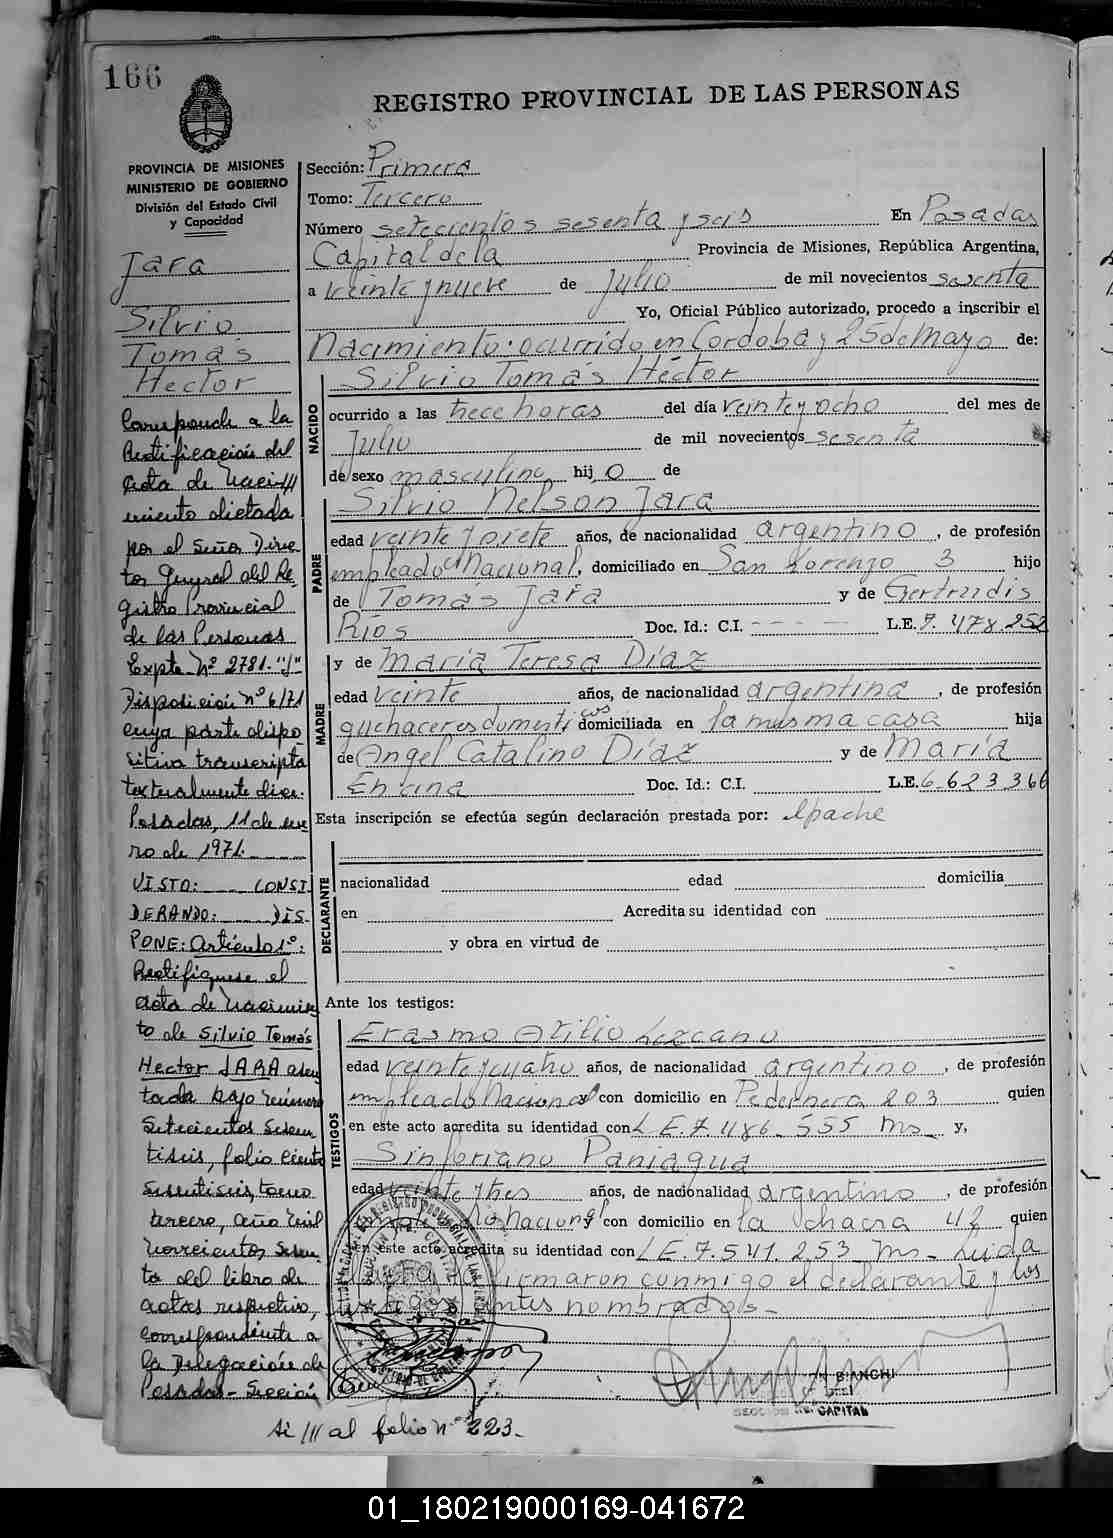 166
REGISTRO PROVINCIAL DE LAS PERSONAS
PROVINCIA DE MISIONES
MINISTERIO DE GOBIERNO
División del Estado Civil
y Capacidad
Jara
Silvio
Tomás
Hector
Corresponde a la
Rectificación del
Acta de Naci-
miento dictada
por el Señor Direc
tor General del Re
gistro Provincial
de las Personas
Expte Nº 2781-"J"
Disposición nº 6/71
cuya parte dispo
sitiva transcripta
textualmente dice:
Posadas, 11 de ene
ro de 1971.
VISTO: CONSI
DERANDO: DIS
PONE: Artículo 1º:
Rectifíquese el
acta de nacimien
to de Silvio Tomás
Hector JARA asen
tada bajo número
Setecientos Sesen
tiseis, folio ciento
Sesentiseis, tomo
tercero, año mil
novecientos Sesen
ta del libro de
actas respectivo,
correspondiente a
la Delegación de
Posadas - Sección
Sección: Primera
Tomo: Tercero
Número setecientos sesenta y seis En Posadas
Capital de la Provincia de Misiones, República Argentina,
a veinte y nueve de Julio de mil novecientos sesenta
Yo, Oficial Público autorizado, procedo a inscribir el
Nacimiento: ocurrido en Cordoba y 25 de Mayo de:
NACIDO
Silvio Tomás Héctor
ocurrido a las trece horas del día veinte y ocho del mes de
Julio de mil novecientos sesenta
de sexo masculino hijo de
PADRE
Silvio Nelson Jara
edad veinte y siete años, de nacionalidad argentino, de profesión
empleado Nacional, domiciliado en San Lorenzo 3 hijo
de Tomás Jara y de Gertrudis
Ríos Doc. Id.: C.I. - - - - - L.E. 7.478.252
MADRE
y de María Teresa Díaz
edad veinte años, de nacionalidad argentina, de profesión
quehaceres domesticos domiciliada en la misma casa hija
de Angel Catalino Díaz y de María
Doc. Id.: C.I. L.E. 6.623.366
Esta inscripción se efectúa según declaración prestada por: el padre
DECLARANTE
nacionalidad edad domicilia
en Acredita su identidad con
y obra en virtud de
Ante los testigos:
TESTIGOS
Erasmo Otilio Lezcano
edad veinte y cuatro años, de nacionalidad argentino, de profesión
empleado Nacional y con domicilio en Pedernera 203 quien
en este acto acredita su identidad con L.E. 7.486.555 Ms y,
Sinforiano Paniagua
edad veinte y tres años, de nacionalidad argentino, de profesión
Nacional y con domicilio en la chacra 42 quien
en este acto acredita su identidad con L.E. 7.541.253 Ms - Leída
firmaron conmigo el declarante y los
testigos antes nombrados -
BIANCHI
CAPITAL
al folio nº 223.
01_180219000169-041672